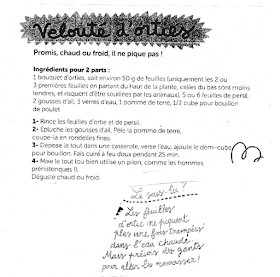 Velouté d'orties
Promis, chaud ou froid, il ne pique pas !
Ingrédients pour 2 parts :
1 bouquet d'orties, soit environ 50 g de feuilles (uniquement les 2 ou
3 premières feuilles en partant du haut de la plante, celles du bas sont moins
tendres, et risquent d'être souillées par les animaux), 5 ou 6 feuilles de persil,
2 gousses d'ail, 3 verres d'eau, 1 pomme de terre, 1/2 cube pour bouillon
de poulet
1- Rince les feuilles d'ortie et de persil.
2- Épluche les gousses d'ail. Pèle la pomme de terre,
coupe-la en rondelles fines.
3- Dépose le tout dans une casserole, verse l'eau, ajoute le demi-cube
pour bouillon. Fais cuire à feu doux pendant 25 min.
4- Mixe le tout (ou bien utilise un pilon, comme les hommes
préhistoriques !).
Déguste chaud ou froid.
Le sais-tu ?
! Les feuilles
d'ortie ne piquent
plus une fois trempées
dans l'eau chaude.
Mais prévois des gants
pour aller les ramasser !